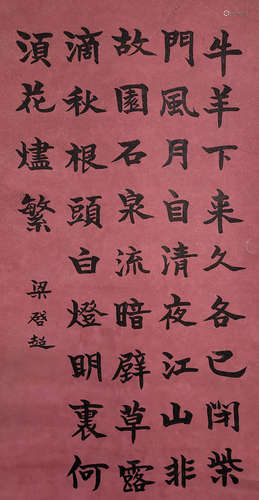 牛羊下来久各已閉柴
門風月自清夜江山非
故園石泉流暗壁草露
滴秋根頭白燈明裏何
湏花燼繁
梁啓超